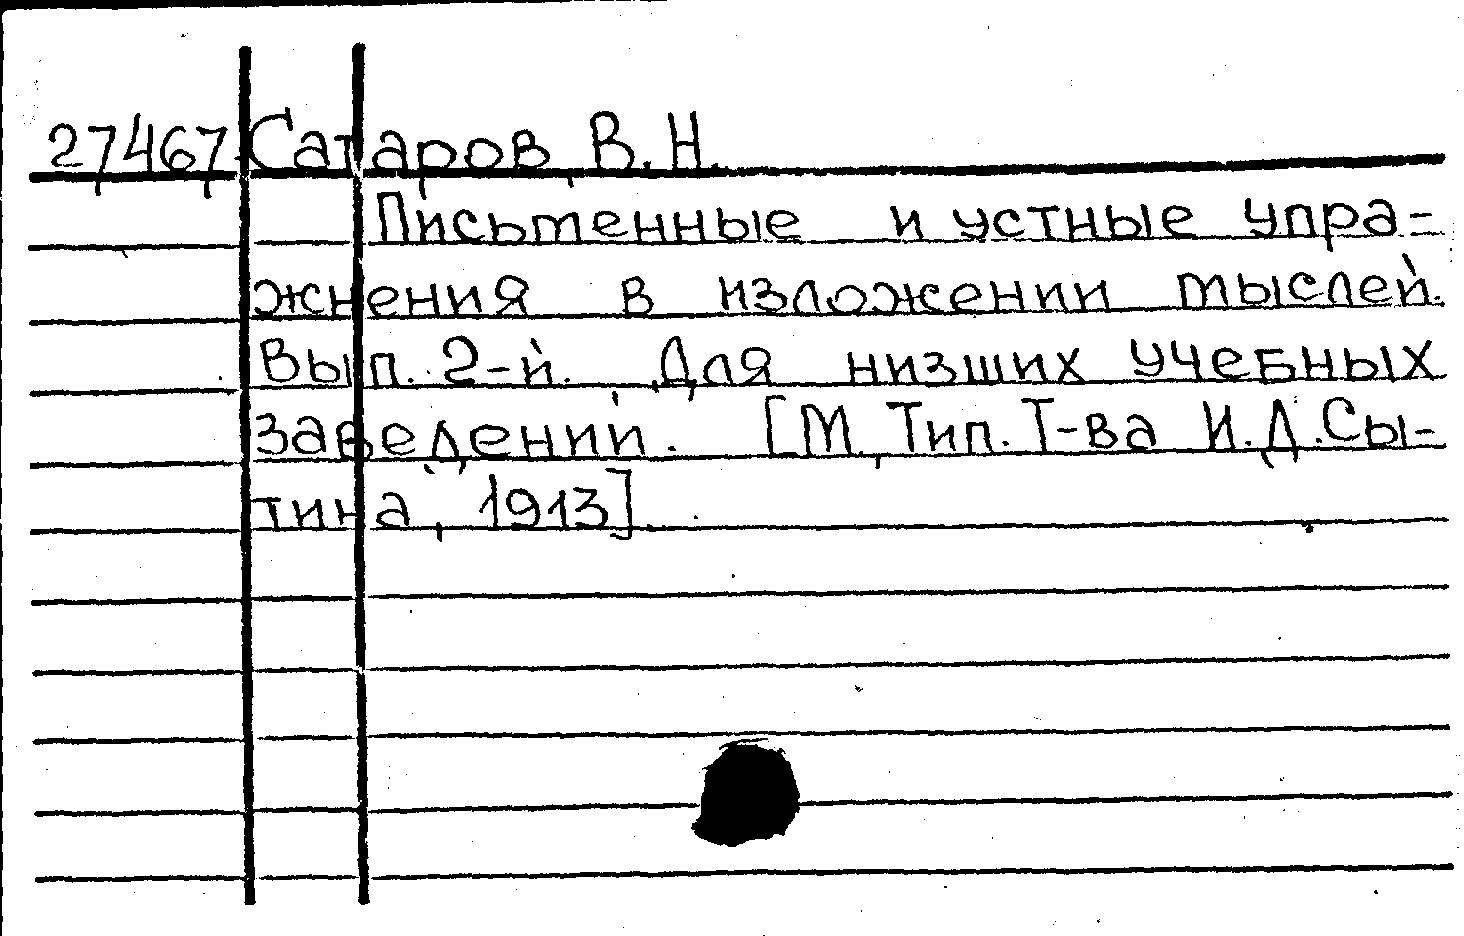 27467 Сатаров, В. Н.
Письменные и устные упра-
жнения в изложении мыслей.
Вып. 2-й. Для низших учебных
заведений. [М., Тип. Т-ва И.Д.Сы-
тина, 1913].